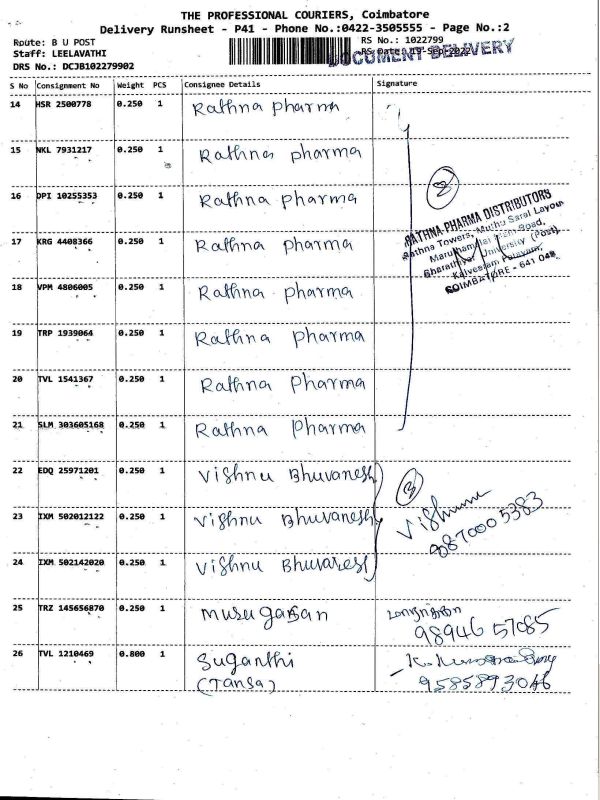 THE PROFESSIONAL COURIERS, Coimbatore
Delivery Runsheet - P41 - Phone No.:0422-3505555 - Page No.:2
Route: B U POST
RS No.: 1022799
Staff: LEELAVATHI
RS Date: 19-Sep-2022
DOCUMENT DELIVERY
DRS No.: DCJB102279902
S No Consignment No Weight PCS Consignee Details Signature
14 HSR 2500778 0.250 1 Rathna pharma
15 NKL 7931217 0.250 1 Rathna pharma
16 DPI 10255353 0.250 1 Rathna pharma
17 KRG 4408366 0.250 1 Rathna pharma
18 VPM 4806005 0.250 1 Rathna pharma
19 TRP 1939064 0.250 1 Rathna pharma
20 TVL 1541367 0.250 1 Rathna pharma
21 SLM 303605168 0.250 1 Rathna pharma
8
RATHNA PHARMA DISTRIBUTORS
Rathna Towers, Muthu Sarai Layout
Maruthamalai Main Road,
Bharathiyar University (Post)
COIMBATORE - 641 046
22 EDQ 25971201 0.250 1 Vishnu Bhuvanesh
23 IXM 502012122 0.250 1 Vishnu Bhuvanesh
24 IXM 502142020 0.250 1 Vishnu Bhuvanesh
3
Vishnu
987000 5383
25 TRZ 145656870 0.250 1 Murugasan
98946 57085
26 TVL 1210469 0.800 1 Suganthi
(Tansa)
9585893046